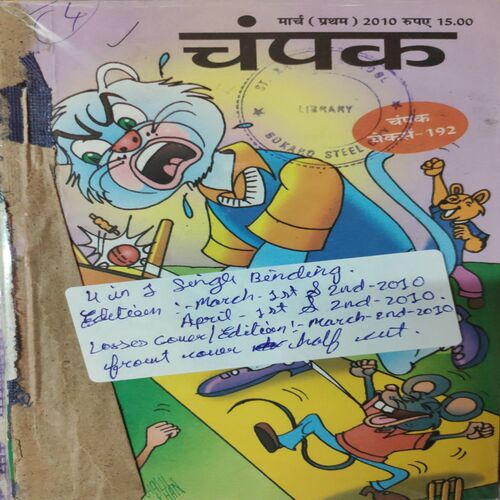 4
मार्च ( प्रथम ) 2010 रुपए 15.00
चंपक
LIBRARY
BOKARO STEEL
चंपक
वीकर्स-192
4 in 1 Single Binding.
Edition :- March - 1st & 2nd - 2010
April - 1st & 2nd - 2010.
Losses Cover/Edition :- March-2nd-2010
front cover half cut.